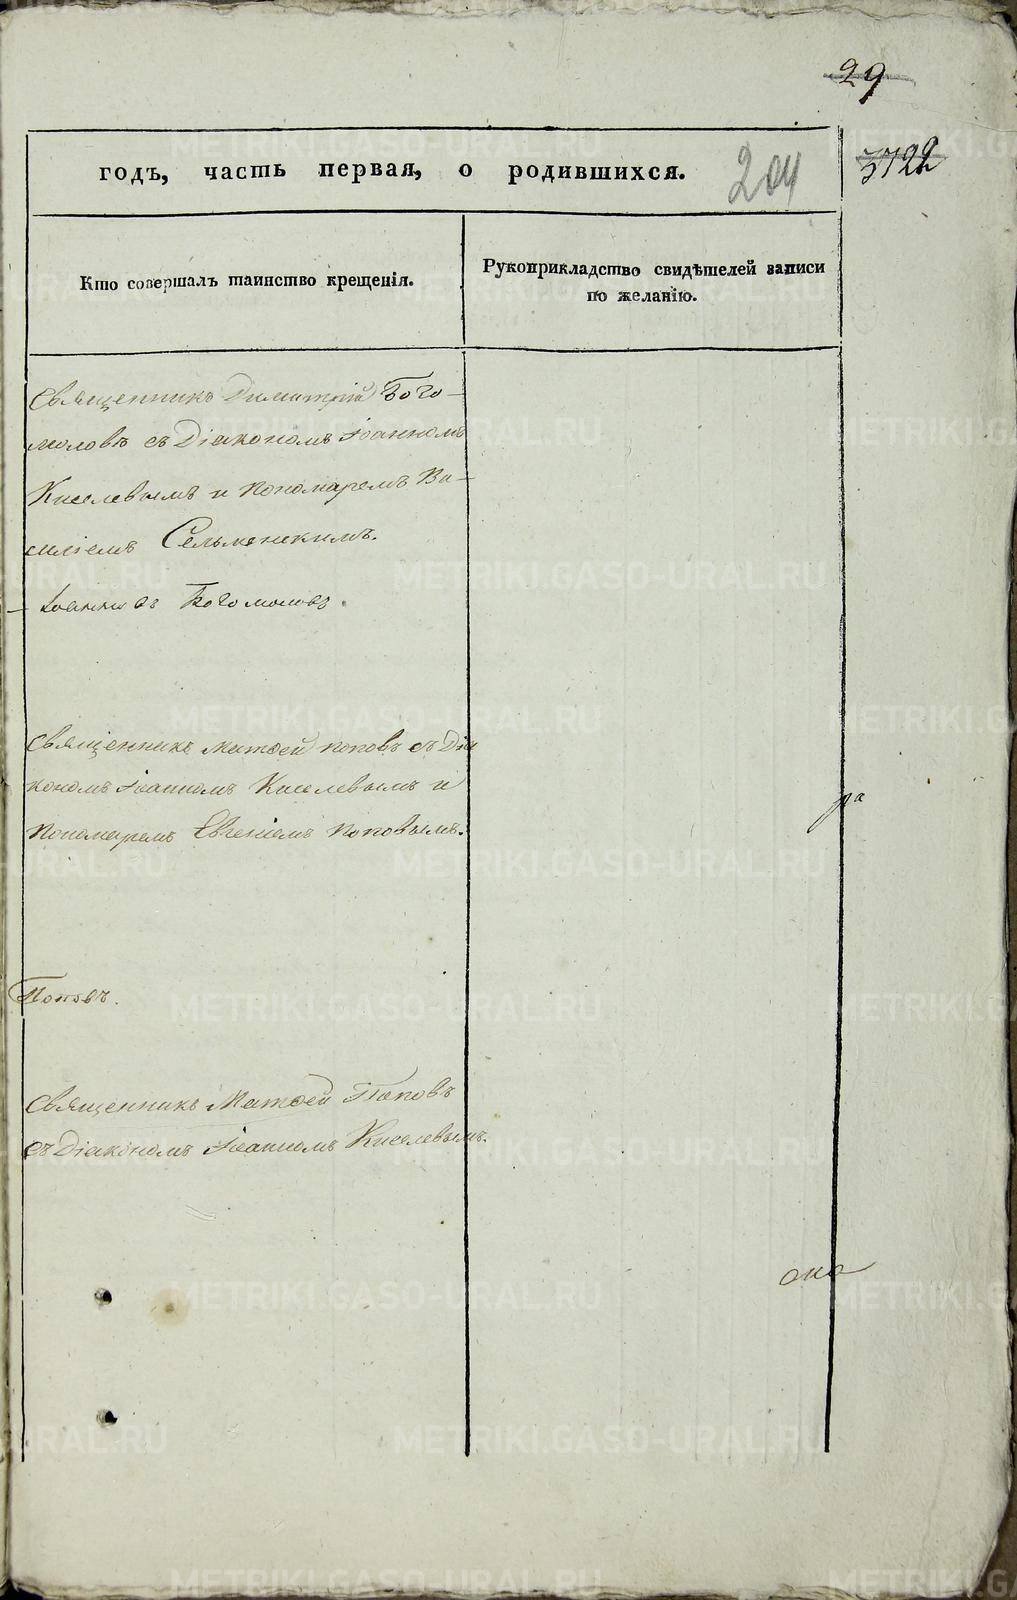 29
3722
годъ, часть первая, о родившихся.
204
Кто совершалъ таинство крещенія.
Рукоприкладство свидѣтелей записи
по желанію.
Священникъ Димитрій Бого-
моловъ съ Діакономъ Іоанномъ
Киселевымъ и пономаремъ Ва-
силіемъ Сельменскимъ.
Богомоловъ.
Священникъ Матѳей Поповъ съ Діа
кономъ Іоанномъ Киселевымъ и
Пономаремъ Евгеніемъ Поповымъ.
ра
Поповъ.
Священникъ Матѳей Поповъ
съ Діакономъ Іоанномъ Киселевымъ.
METRIKI.GASO-URAL.RU